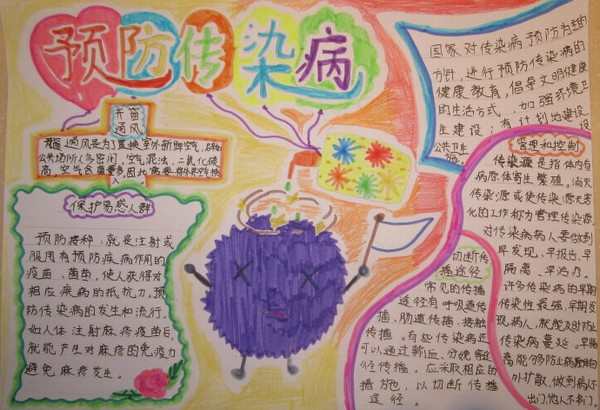 预防传染病
开窗
通风
开窗通风是为了置换室外新鲜空气,
公共场所人多密闭,空气混浊,二氧化碳
高,空气含菌量
保护易感人群
预防接种,就是注射或
服用有预防疾病作用的
疫苗、菌苗,使人获得对
相应疾病的抵抗力,预
防传染病的发生和流行。
如人体注射麻疹疫苗后,
就能产生对麻疹的免疫力
避免麻疹发生。
国家对传染病预防为主的
方针,进行预防传染病的
健康教育,倡导文明健康
的生活方式,加强环境卫
生建设;有计划地建设
公共卫生
施。
管理和控制
传染源是指体内有
病原体寄生繁殖。消灭
传染源或使传染源无害
化的工作称为管理传染源
对传染病病人要做到
早发现、早报告、早
隔离、早治疗。
许多传染病的早期
传染性最强,早期发
现病人,就能及时防止
传染病蔓延。早隔
离能够防止病原体向
外扩散,做到病人不
出门,他人不串门。
切断传
播途径
常见的传播
途径有呼吸道传
播、肠道传播、接触
传播。有些传染病还
可以通过
径传播。应采取相应的
措施,以切断传播
途径。